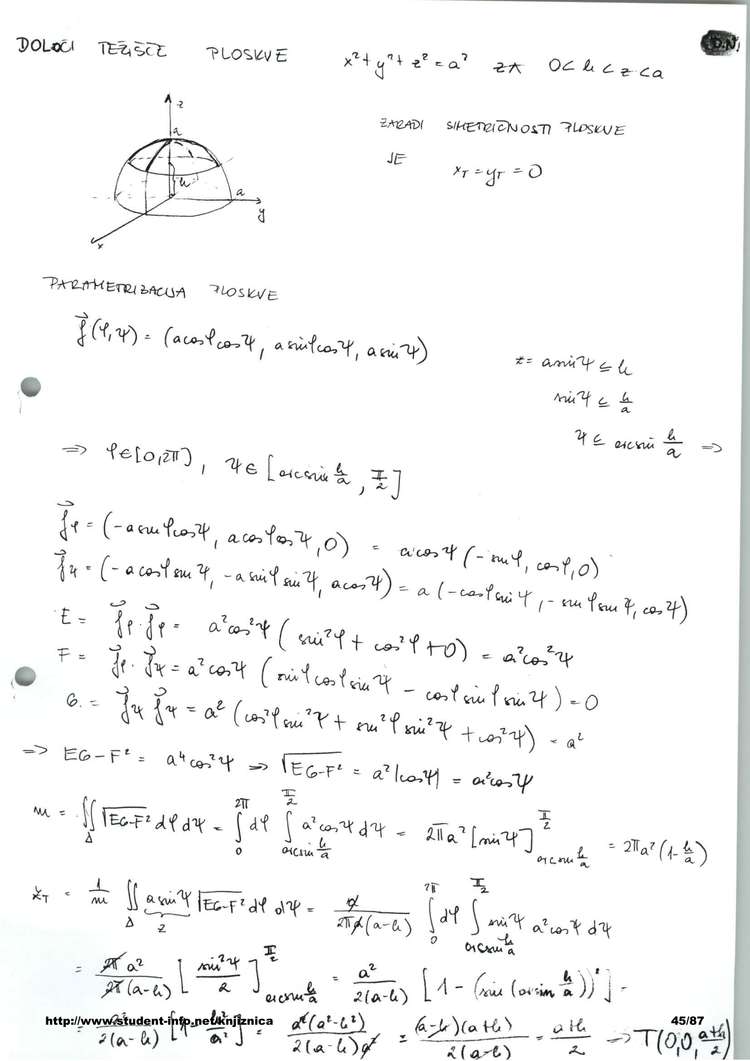 D.N.
DOLOČI TEŽIŠČE PLOSKVE x²+y²+z²=a² ZA 0<h<z<a
ZARADI SIMETRIČNOSTI PLOSKVE
JE x_T = y_T = 0
z
a
h
a
y
x
PARAMETRIZACIJA PLOSKVE
f⃗(φ,ψ) = (a cosφ cosψ, a sinφ cosψ, a sinψ)
z = a sinψ ≤ h
sinψ ≤ h/a
ψ ≤ arcsin h/a ⇒
⇒ φ∈[0,2π], ψ∈[arcsin h/a, π/2]
f⃗φ = (-a sinφ cosψ, a cosφ cosψ, 0) = a cosψ (-sinφ, cosφ, 0)
f⃗ψ = (-a cosφ sinψ, -a sinφ sinψ, a cosψ) = a (-cosφ sinψ, -sinφ sinψ, cosψ)
E = f⃗φ·f⃗φ = a²cos²ψ (sin²φ + cos²φ + 0) = a²cos²ψ
F = f⃗φ·f⃗ψ = a²cosψ (sinφ cosφ sinψ - cosφ sinφ sinψ) = 0
G = f⃗ψ f⃗ψ = a² (cos²φ sin²ψ + sin²φ sin²ψ + cos²ψ) = a²
⇒ EG-F² = a⁴cos²ψ ⇒ √(EG-F²) = a²|cosψ| = a²cosψ
m = ∬_Δ √(EG-F²) dφ dψ = ∫_0^{2π} dφ ∫_{arcsin h/a}^{π/2} a²cosψ dψ = 2πa² [sinψ]_{arcsin h/a}^{π/2} = 2πa²(1-h/a)
z_T = 1/m ∬_Δ a sinψ √(EG-F²) dφ dψ = a/(2πa(a-h)) ∫_0^{2π} dφ ∫_{arcsin h/a}^{π/2} sinψ a²cosψ dψ
z
= 2π a²/(2π(a-h)) [sin²ψ/2]_{arcsin h/a}^{π/2} = a²/(2(a-h)) [1 - (sin(arcsin h/a))²] =
= a²/(2(a-h)) [1 - h²/a²] = a²(a²-h²)/(2(a-h)a²) = (a-h)(a+h)/(2(a-h)) = (a+h)/2 ⇒ T(0,0,(a+h)/2)
http://www.student-info.net/knjiznica 45/87